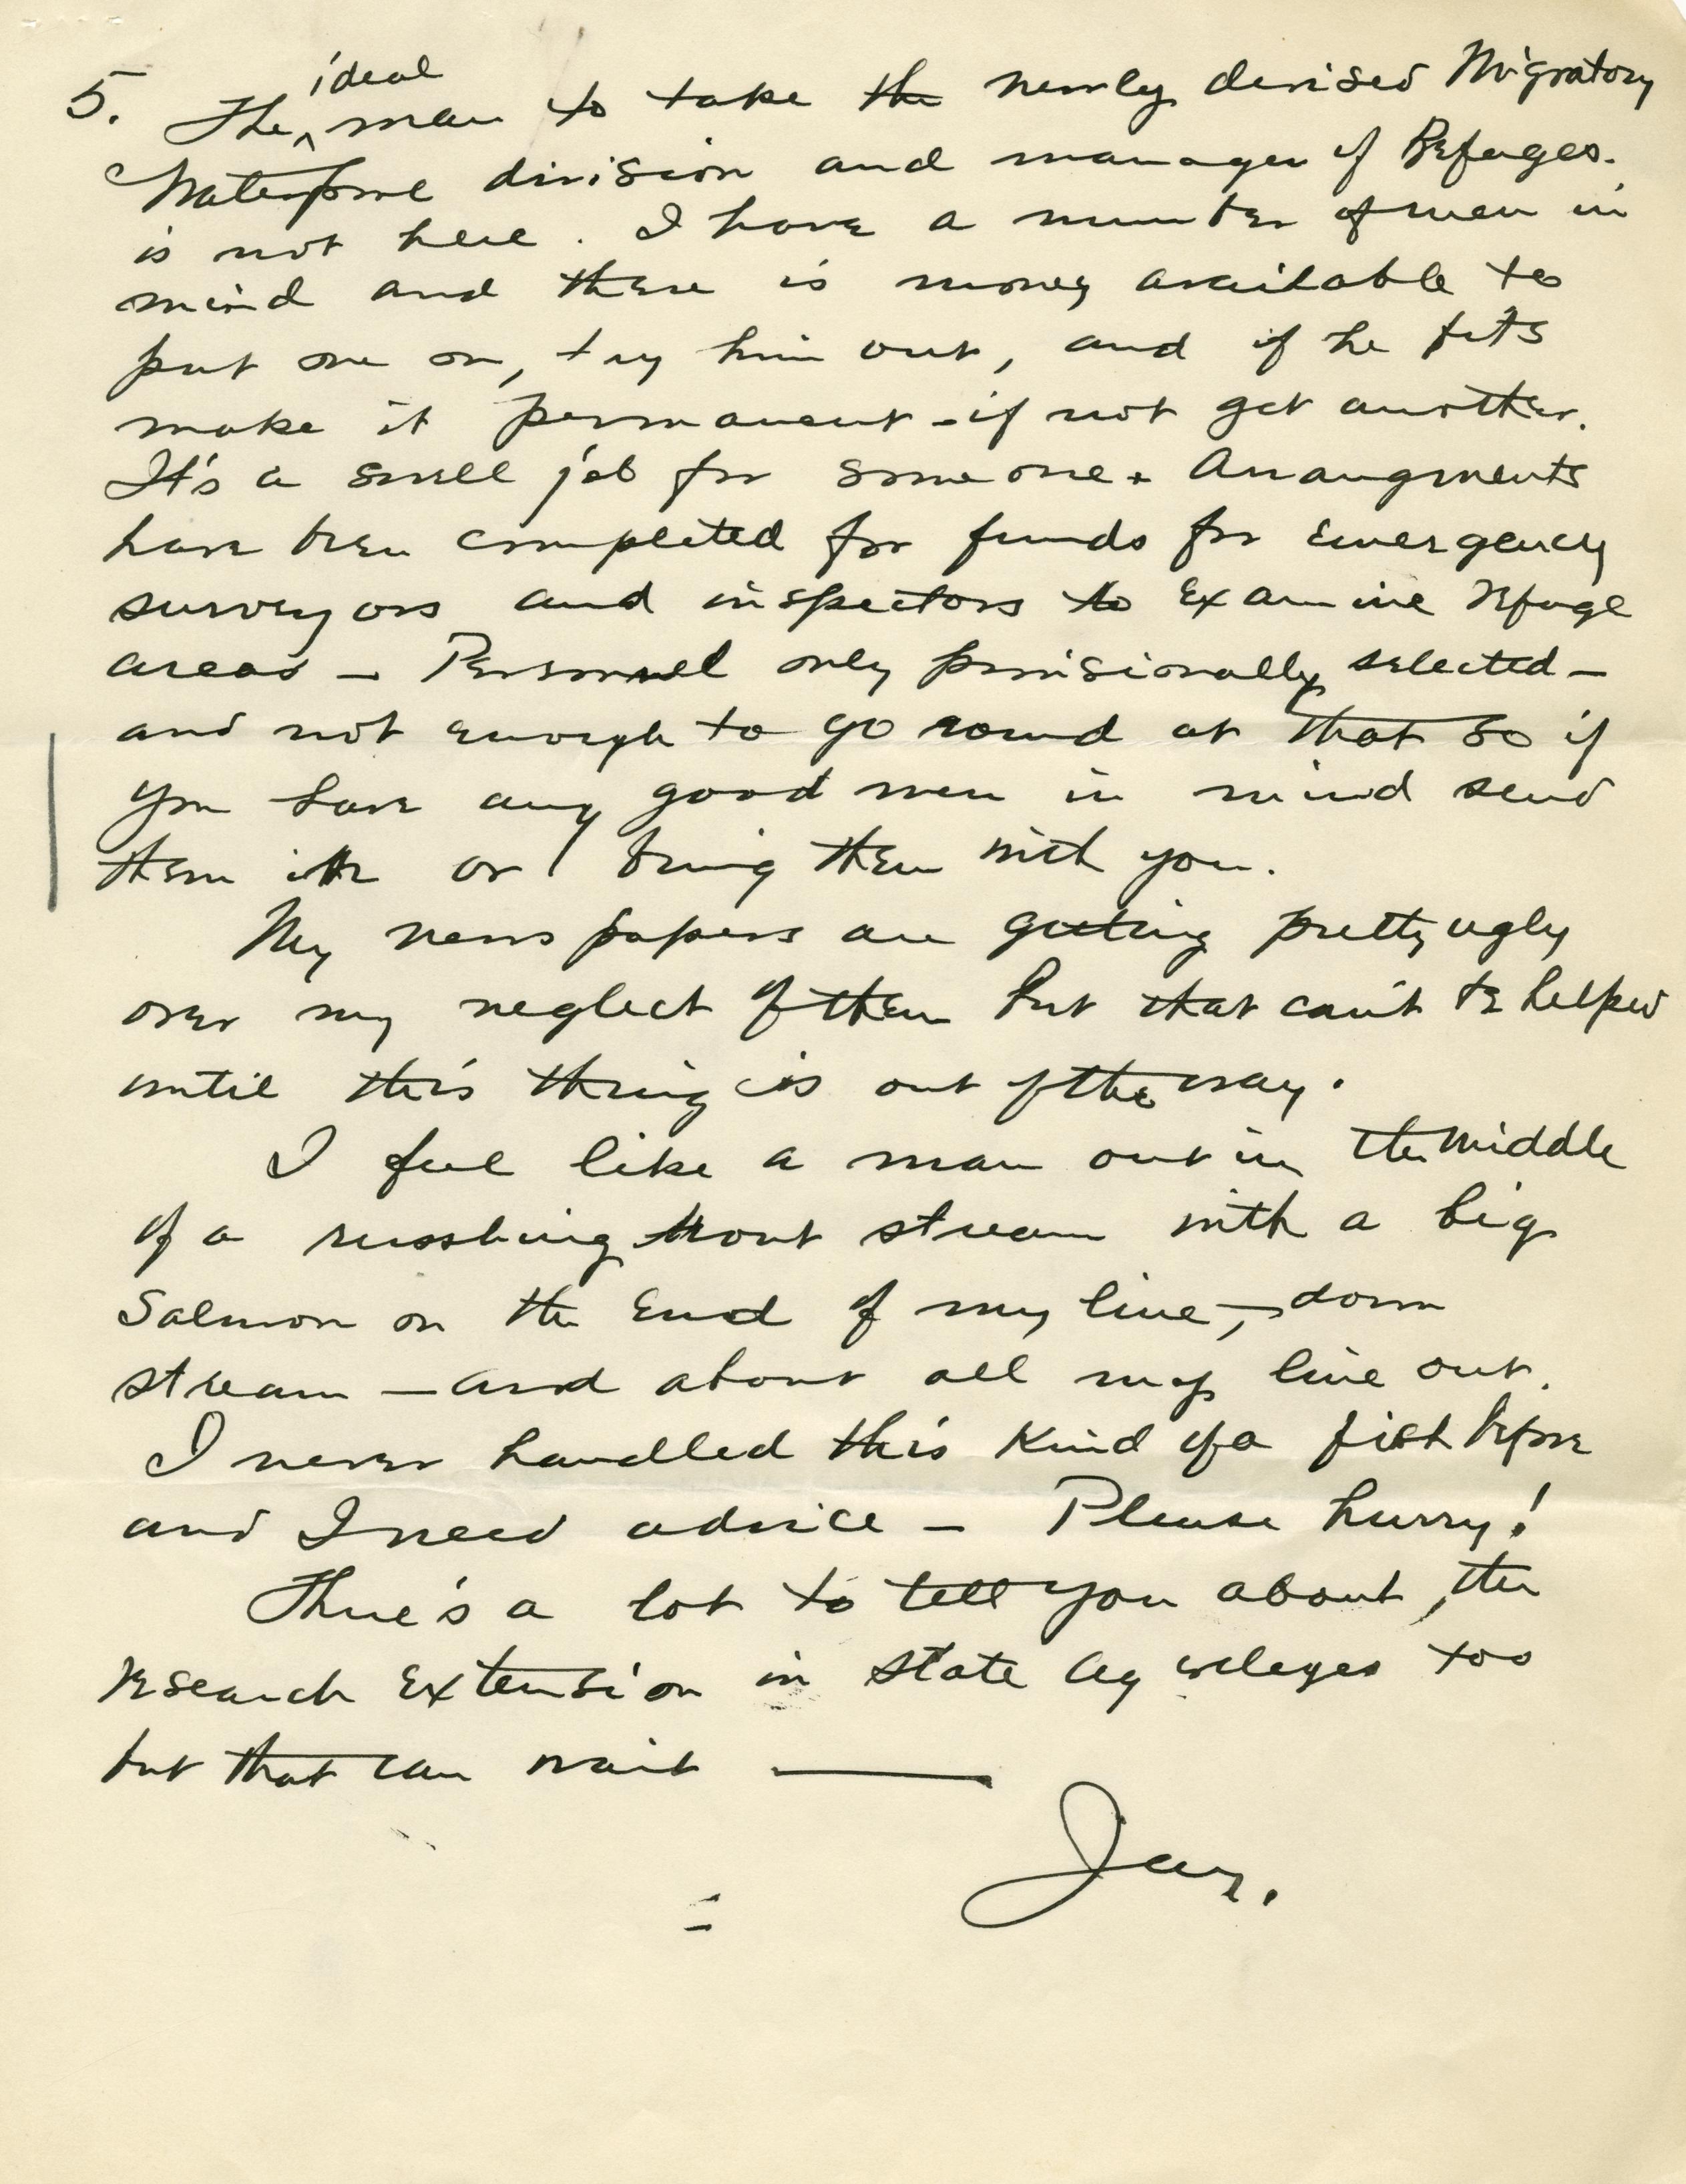 5. The ideal man to take the newly devised Migratory
Waterfowl division and manager of Refuges.
is not here. I have a number of men in
mind and there is money available to
put one on, try him out, and if he fits
make it permanent - if not get another.
It's a swell job for someone. Arrangments
have been completed for funds for emergency
surveyors and inspectors to examine refuge
areas - Personnel only provisionally selected -
and not enough to go round at that so if
you have any good men in mind send
them in or bring them with you.
My newspapers are getting pretty ugly
over my neglect of them but that can't be helped
until this thing is out of the way.
I feel like a man out in the middle
of a russhing trout stream with a big
Salmon on the end of my line, - down
stream - and about all my line out.
I never handled this kind of a fish before
and I need advice - Please hurry!
There's a lot to tell you about, the
research extension in state Ag colleges too
but that can wait —
Jay.